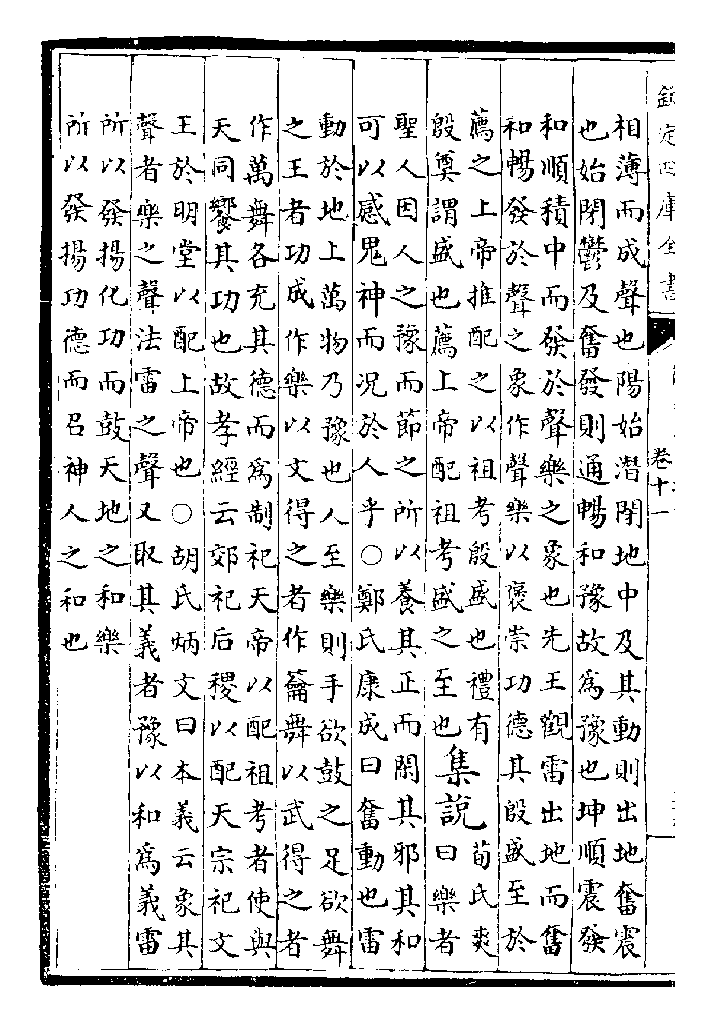 欽定四庫全書
卷十一
相薄而成聲也陽始潛閉地中及其動則出地奮震
也始閉鬱及奮發則通暢和豫故為豫也坤順震發
和順積中而發於聲樂之象也先王觀雷出地而奮
和暢發於聲之象作聲樂以褒崇功德其殷盛至於
薦之上帝推配之以祖考殷盛也禮有
殷奠謂盛也薦上帝配祖考盛之至也
集說
荀氏爽
曰樂者
聖人因人之豫而節之所以養其正而閑其邪其和
可以感鬼神而況於人乎○鄭氏康成曰奮動也雷
動於地上萬物乃豫也人至樂則手欲鼓之足欲舞
之王者功成作樂以文得之者作籥舞以武得之者
作萬舞各充其德而為制祀天帝以配祖考者使與
天同饗其功也故孝經云郊祀后稷以配天宗祀文
王於明堂以配上帝也○胡氏炳文曰本義云象其
聲者樂之聲法雷之聲又取其義者豫以和為義雷
所以發揚化功而鼓天地之和樂
所以發揚功德而召神人之和也